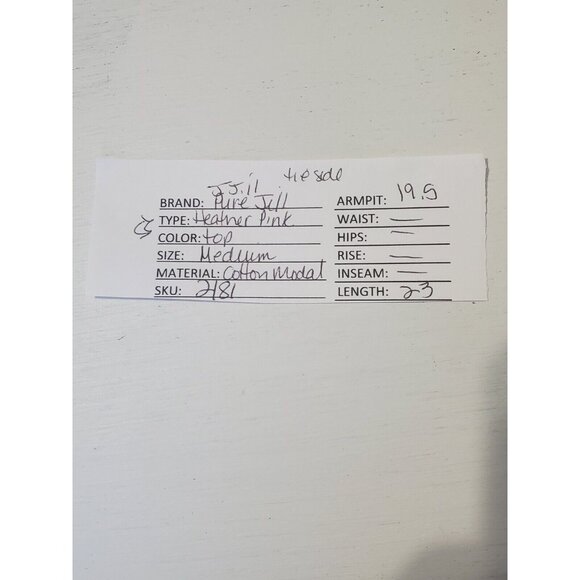 J.Jill tie side
BRAND: Pure Jill ARMPIT: 19.5
TYPE: Heather Pink WAIST: —
COLOR: top HIPS: —
SIZE: Medium RISE: —
MATERIAL: Cotton Modal INSEAM: —
SKU: 2181 LENGTH: 23